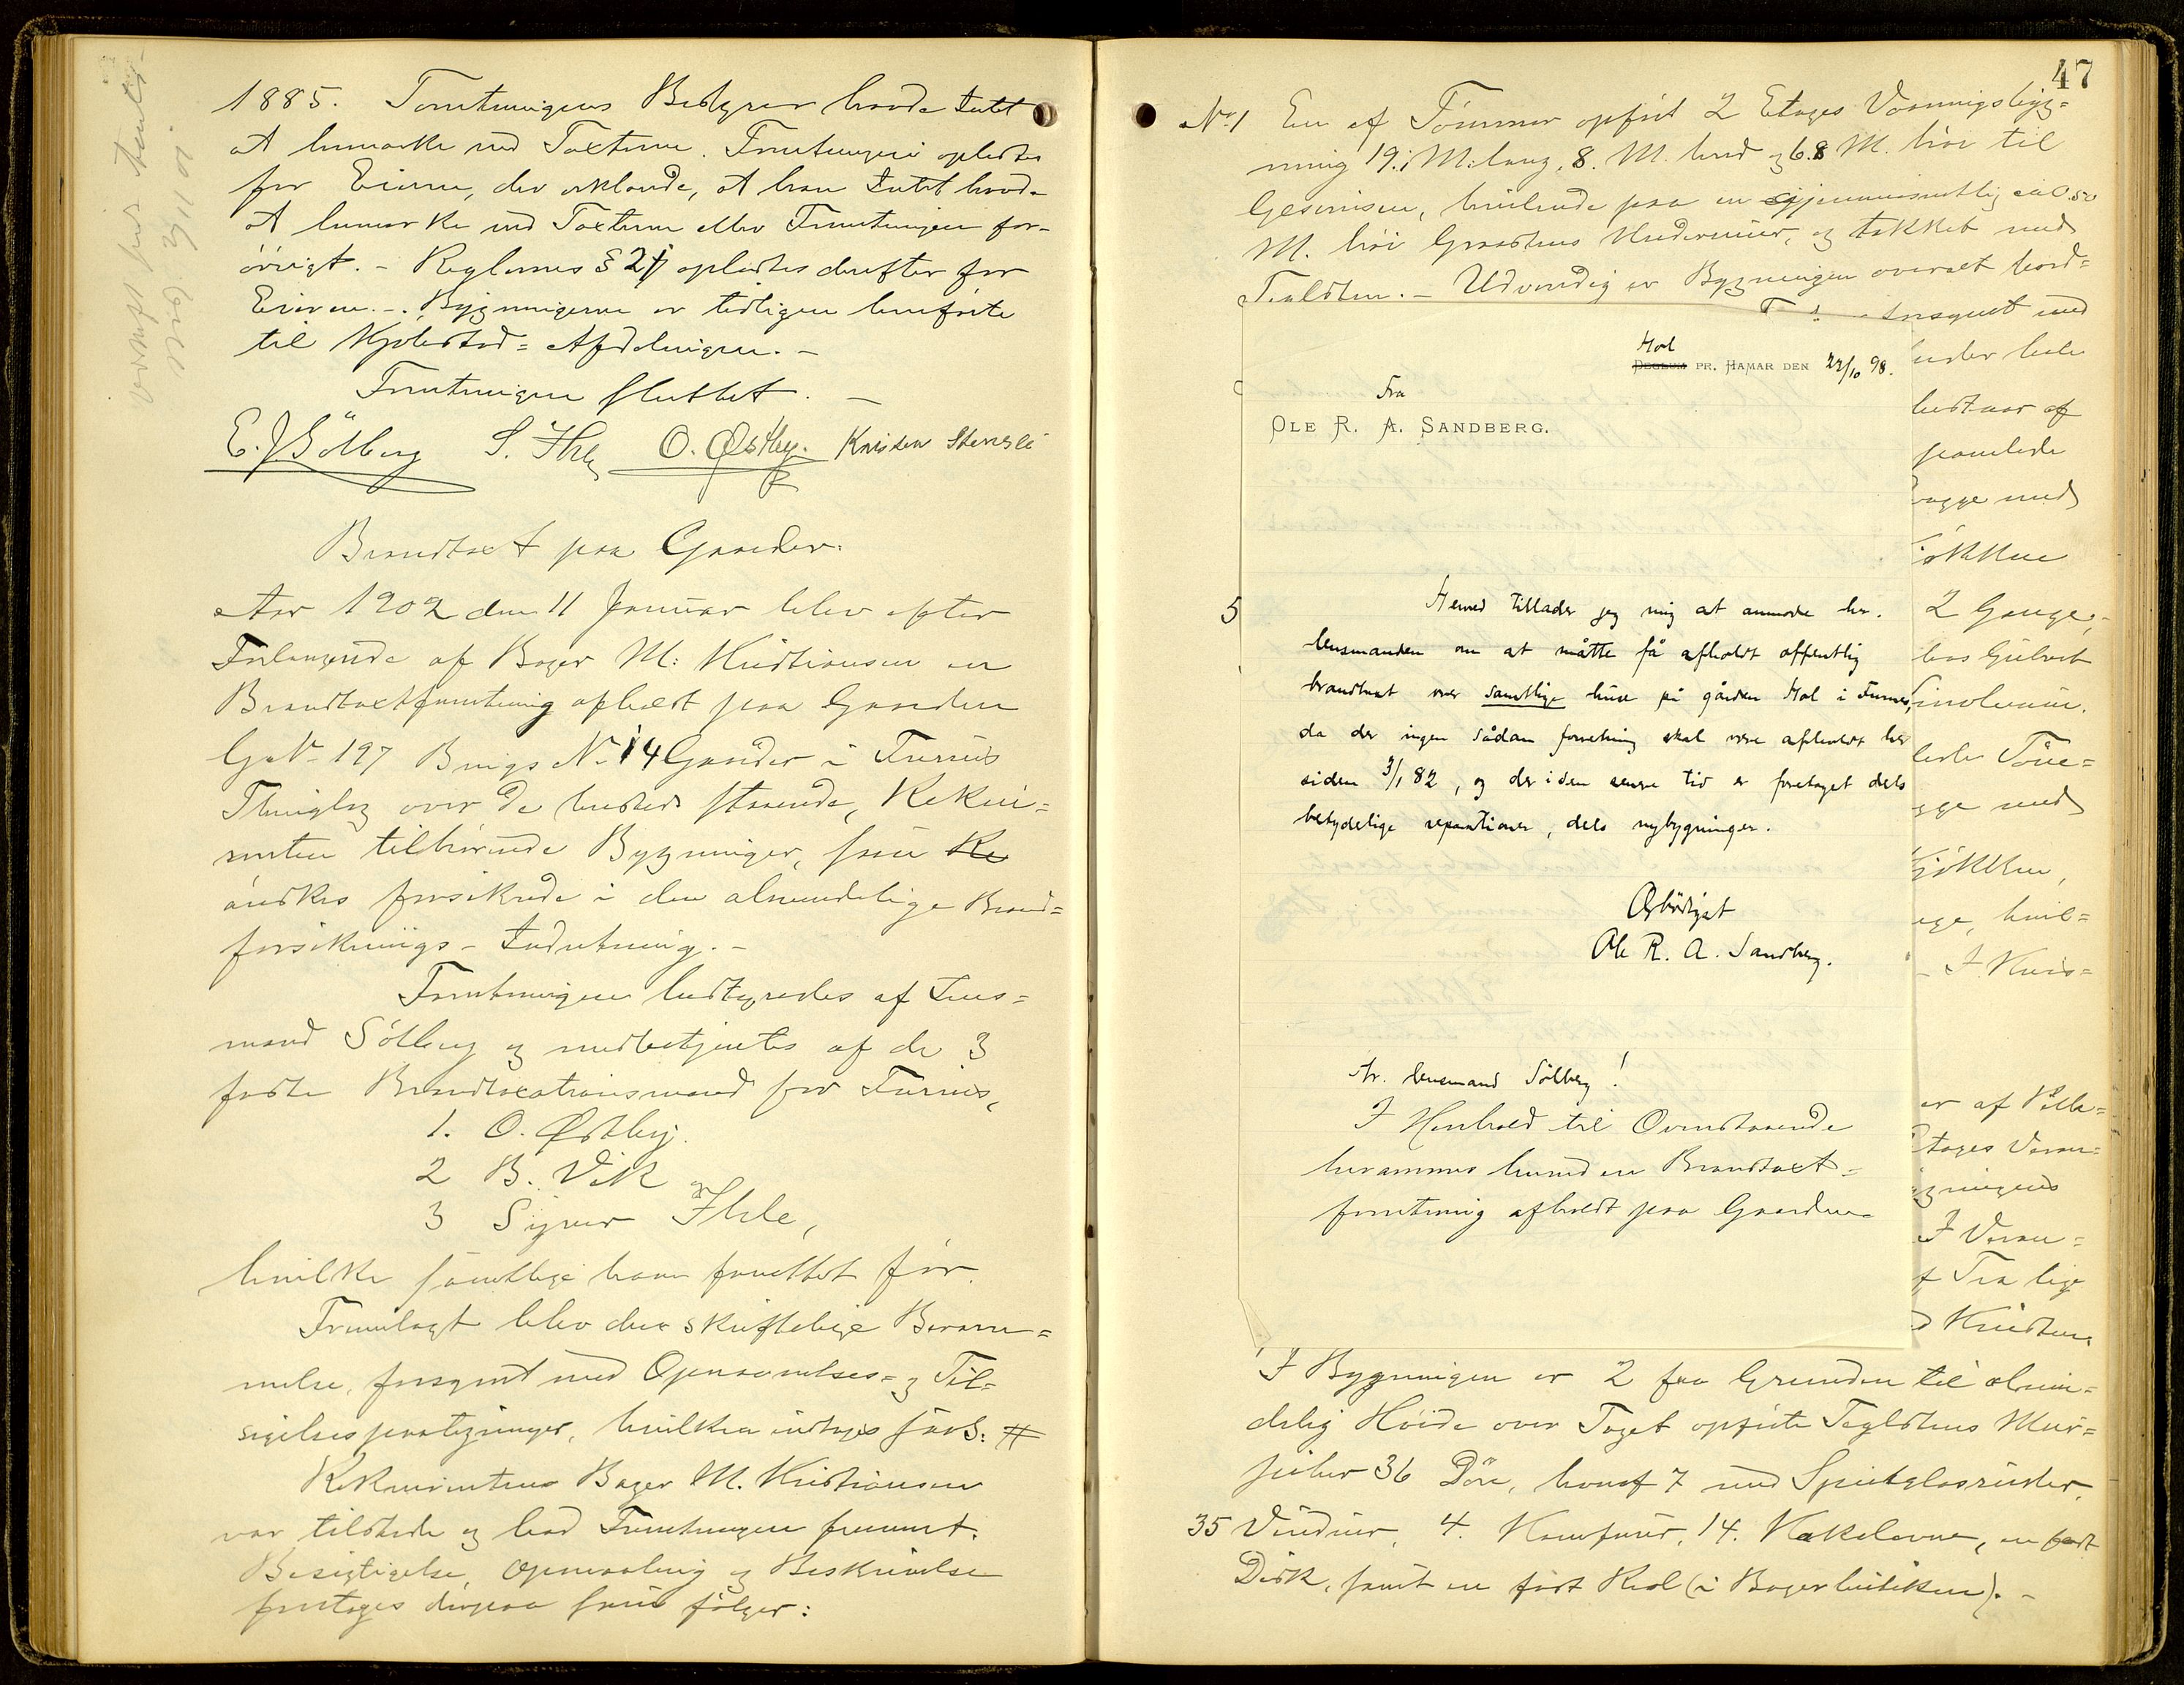 1885. Forretningens Bestyrer havde Intet
at bemærke ved Taxterne. Forretningen oplæstes
for Eieren, der erklærede, at han Intet havde
at bemærke ved Taxterne eller Forretningen for-
øvrigt. - Reglernes § 21 oplæstes derefter for
Eieren. - Bygningerne er tidligere henførte
til Kjøbstad= Afdelingen. -
Forretningen sluttet. -
E. J. Sölberg S. Ihle O. Østby. Kristen Stensli
Brandtaxt paa Gaarder.
Aar 1902 den 11 Januar blev efter
Forlangende af Bager M: Kristiansen en
Brandtaxtforretning afholdt paa Gaarden
G. No 197 Brugs No 14 Gaarder i Furnes
Thinglag over de husteds staaende, Rekvi=
renten tilhørende Bygninger, som Re
ønskes forsikrede i den almindelige Brand=
forsikrings- Indretning. -
Forretningen bestyredes af Lens=
mand Sölberg og medbetjentes af de 3
faste Brandtaxationsmænd for Furnes,
1. O. Østby.
2 B. Vik og
3 Syver Ihle,
hvilke samtlige have forrettet før.
Fremlagt blev den skriftelige Beram=
melse, forsynet med Opnævnelses= og Til=
sigelsespaategninger, hvilken indtages saal: #
Rekvirenten Bager M. Kristiansen
var tilstede og bad Forretningen fremmet.
Besigtigelse, Opmaaling og Beskrivelse
foretoges derpaa som følger:
47
No 1 En af Tømmer opført 2 Etages Vaaningsbyg=
ning 19.1 M. lang, 8. M. bred og 6.8 M. høi til
Gesimsen, hvilende paa en gjennemsnitlig ca 0.50
M. høi Graastens Undermur, og tækket med
Taglsten. - Udvendig er Bygningen overalt bord=
forsynet med
under hele
bestaar af
panelede
vægge med
Kjøkken
2 Gange,
hos Gulvet
Linoleum.
Kjøkken,
hvil=
I Kvis=
er af Villa=
Etages Veran=
Bygningens
I Veran=
af Træ lige
Hol
DEGLUM PR. HAMAR DEN 22/10 98.
Fra
OLE R. A. SANDBERG.
Herved tillader jeg mig at anmode hr.
lensmanden om at måtte få afholdt offentlig
brandtaxt over samtlige huse på gården Hol i Furnes,
da der ingen sådan forretning skal være afholdt her
siden 3/1 82, og der i den senere tid er foretaget dels
betydelige reparationer, dels nybygninger.
Ærbødigst
Ole R. A. Sandberg.
Hr. lensmand Sölberg!
I Henhold til Ovenstaaende
berammes herved en Brandtaxt-
forretning afholdt paa Gaarden
I Bygningen er 2 fra Grunden til almin=
delig Høide over Taget opførte Taglstens Mur=
piber 36 Døre, hvoraf 7 med Speilglasruder,
35 Vinduer, 4. Komfurer, 14. Kakelovne, en fast
Disk, samt en fast Reol (i Bagerbutiken). -